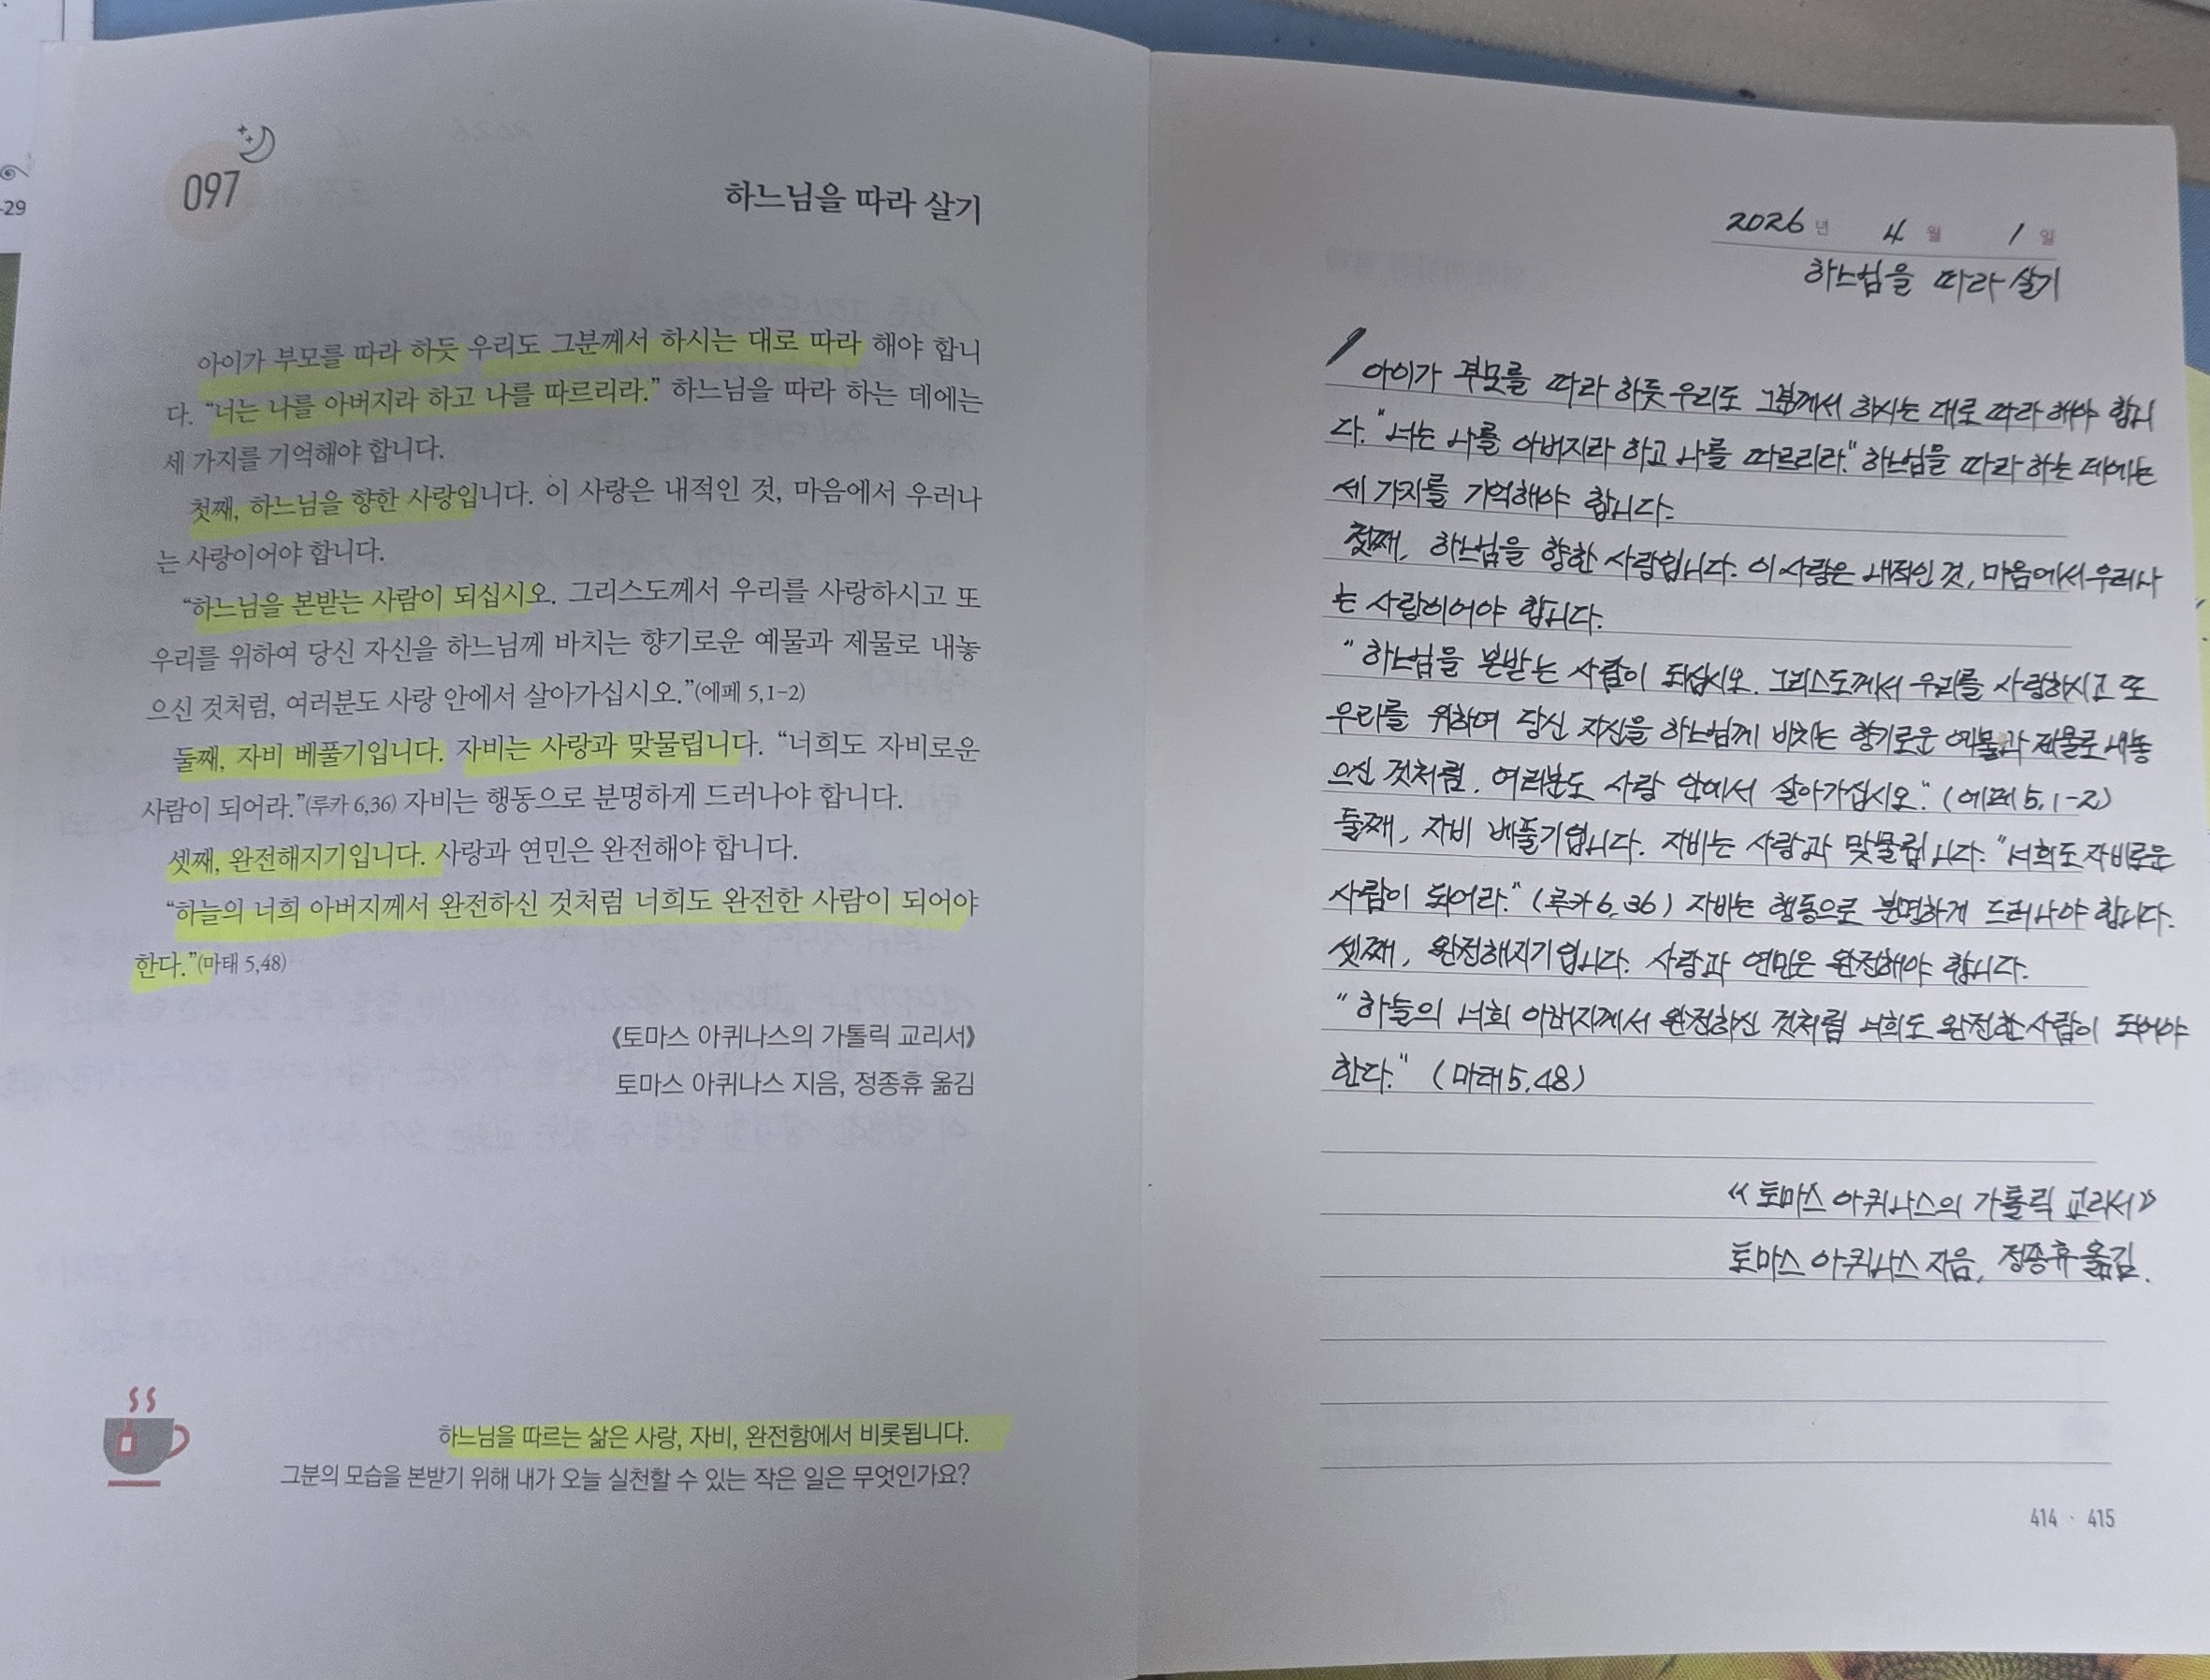 -29
097
하느님을 따라 살기
아이가 부모를 따라 하듯 우리도 그분께서 하시는 대로 따라 해야 합니
다. “너는 나를 아버지라 하고 나를 따르리라.” 하느님을 따라 하는 데에는
세 가지를 기억해야 합니다.
첫째, 하느님을 향한 사랑입니다. 이 사랑은 내적인 것, 마음에서 우러나
는 사랑이어야 합니다.
“하느님을 본받는 사람이 되십시오. 그리스도께서 우리를 사랑하시고 또
우리를 위하여 당신 자신을 하느님께 바치는 향기로운 예물과 제물로 내놓
으신 것처럼, 여러분도 사랑 안에서 살아가십시오.”(에페 5,1-2)
둘째, 자비 베풀기입니다. 자비는 사랑과 맞물립니다. “너희도 자비로운
사람이 되어라.”(루카 6,36) 자비는 행동으로 분명하게 드러나야 합니다.
셋째, 완전해지기입니다. 사랑과 연민은 완전해야 합니다.
“하늘의 너희 아버지께서 완전하신 것처럼 너희도 완전한 사람이 되어야
한다.”(마태 5,48)
《토마스 아퀴나스의 가톨릭 교리서》
토마스 아퀴나스 지음, 정종휴 옮김
하느님을 따르는 삶은 사랑, 자비, 완전함에서 비롯됩니다.
그분의 모습을 본받기 위해 내가 오늘 실천할 수 있는 작은 일은 무엇인가요?
2026년 4월 1일
하느님을 따라 살기
아이가 부모를 따라 하듯 우리도 그분께서 하시는 대로 따라 해야 합니
다. “너는 나를 아버지라 하고 나를 따르리라.” 하느님을 따라 하는 데에는
세 가지를 기억해야 합니다.
첫째, 하느님을 향한 사랑입니다. 이 사랑은 내적인 것, 마음에서 우러나
는 사랑이어야 합니다.
“하느님을 본받는 사람이 되십시오. 그리스도께서 우리를 사랑하시고 또
우리를 위하여 당신 자신을 하느님께 바치는 향기로운 예물과 제물로 내놓
으신 것처럼, 여러분도 사랑 안에서 살아가십시오.” (에페 5,1-2)
둘째, 자비 베풀기입니다. 자비는 사랑과 맞물립니다. “너희도 자비로운
사람이 되어라.” (루카 6,36) 자비는 행동으로 분명하게 드러나야 합니다.
셋째, 완전해지기입니다. 사랑과 연민은 완전해야 합니다.
“하늘의 너희 아버지께서 완전하신 것처럼 너희도 완전한 사람이 되어야
한다.” (마태 5,48)
《토마스 아퀴나스의 가톨릭 교리서》
토마스 아퀴나스 지음, 정종휴 옮김.
414 · 415